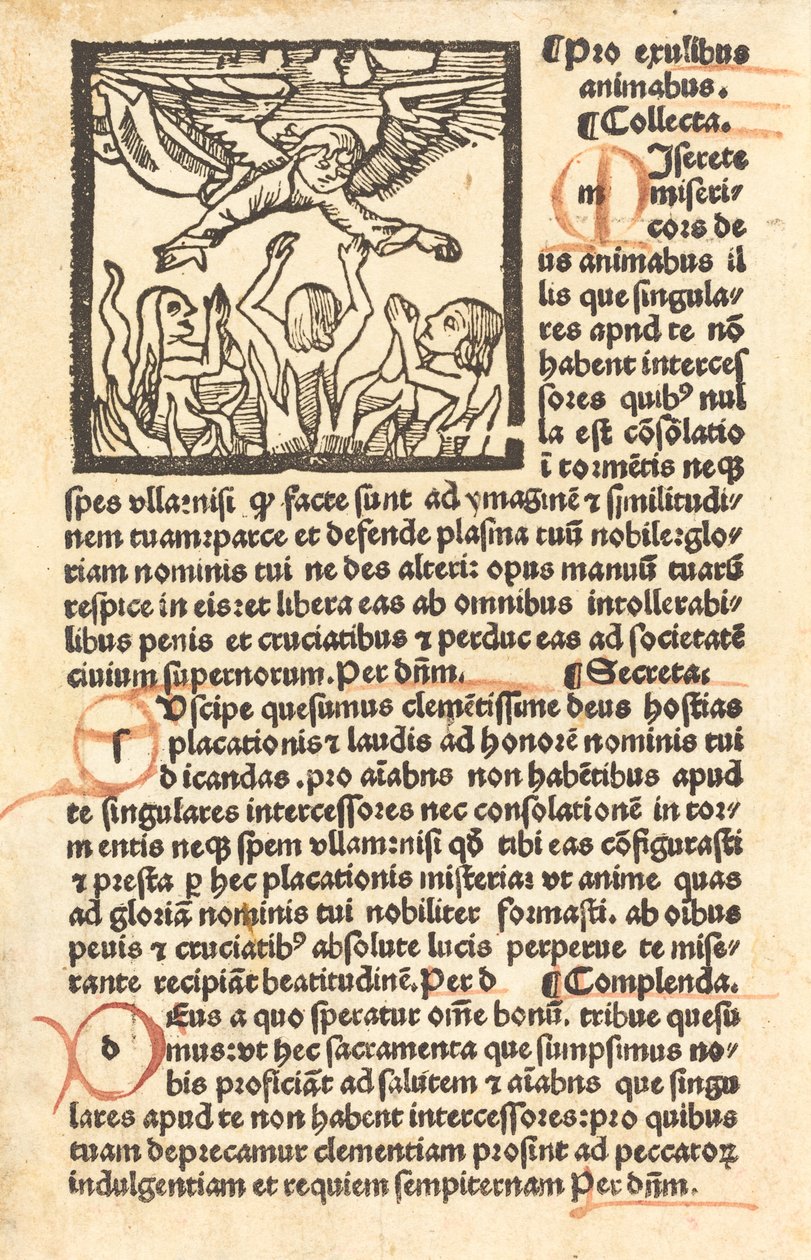 ¶Pro exulibus
animabus.
¶Collecta.
MIserete
m miseri⸗
cors de
us animabus il
lis que singula⸗
res apud te nō
habent interces
sores quibꝰ nul
la est cōsolatio
ī tormētis neqꝫ
spes vlla:nisi ꝙ facte sunt ad ymaginē ⁊ similitudi⸗
nem tuam:parce et defende plasma tuū nobile:glo⸗
riam nominis tui ne des alteri: opus manuū tuarū
respice in eis:et libera eas ab omnibus intollerabi⸗
libus penis et cruciatibus ⁊ perduc eas ad societatē
ciuium supernorum.Per dn̄m. ¶Secreta.
SVscipe quesumus clemētissime deus hostias
s placationis ⁊ laudis ad honorē nominis tui
dicandas .pro aīabns non habētibus apud
te singulares intercessores nec consolationē in tor⸗
mentis neqꝫ spem vllam:nisi qđ tibi eas cōfigurasti
⁊ presta ꝑ hec placationis misteria: vt anime quas
ad gloriā nominis tui nobiliter formasti. ab oībus
penis ⁊ cruciatibꝰ absolute lucis perperue te mise⸗
rante recipiāt beatitudinē.Per d ¶Complenda.
DEus a quo speratur om̄e bonū. tribue quesu
d mus:vt hec sacramenta que sumpsimus no⸗
bis proficiāt ad salutem ⁊ aīabns que singu
lares apud te non habent intercessores:pro quibus
tuam deprecamur clementiam prosint ad peccatoꝝ
indulgentiam et requiem sempiternam Per dn̄m.